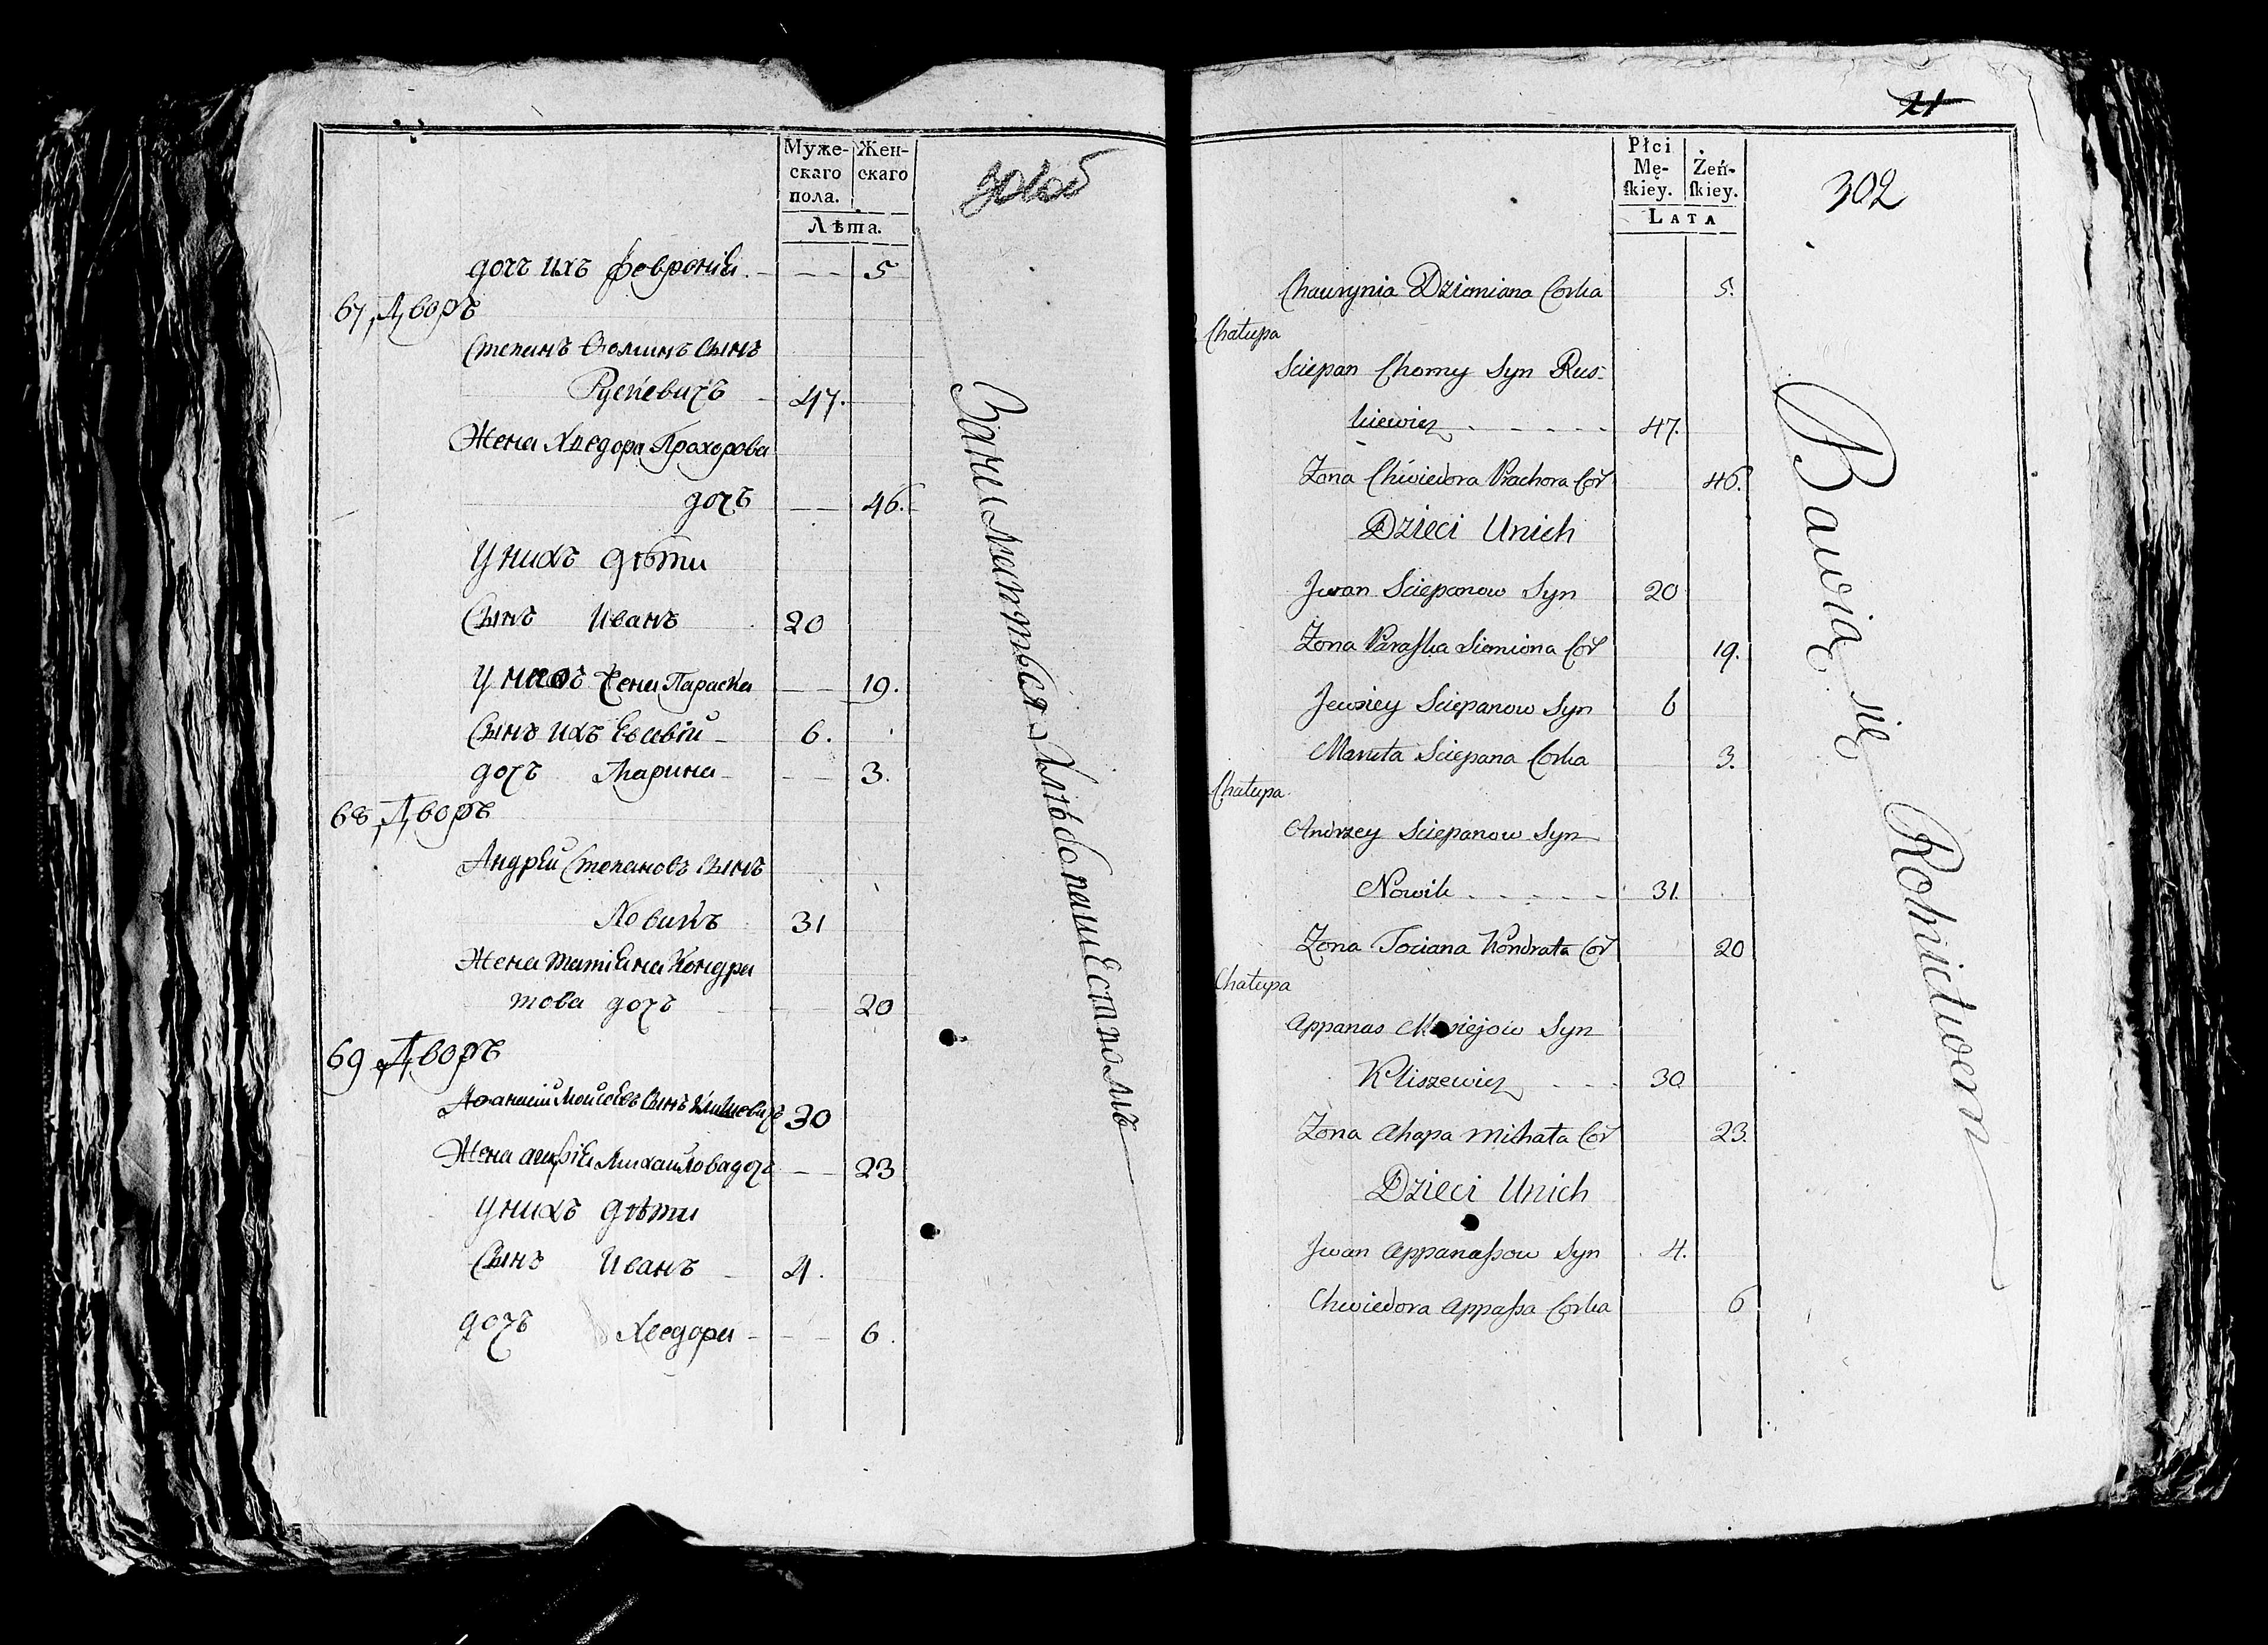 Муже-
скаго
пола.
Жен-
скаго
Лѣта.
дочь ихъ Февронія 5
67 Дворъ
Степанъ Ѳоминъ сынъ
Рускевичъ 47.
Жена Хведора Прохорова
дочь 46.
У нихъ дѣти
Сынъ Иванъ 20
У него жена Параска 19.
Сынъ ихъ Евсевій 6.
дочь Марина 3.
68 Дворъ
Андрей Степановъ сынъ
Новикъ 31
Жена Татіяна Кондра
това дочь 20
69 Дворъ
Афанасій Моисеевъ сынъ Климовичъ 30
Жена Агафія Михайлова дочь 23
У нихъ дѣти
Сынъ Иванъ 4.
дочь Хведора 6.
Занимаиться Хлѣбопашествомъ
21
Płci
Mę-
skiey.
Żeń-
skiey.
LATA
302
Chaurynia Dziemiana Corka 5.
Chałupa
Sciepan Chomy Syn Rus-
kiewicz 47.
Zona Chwiedora Prachora Cor 46.
Dzieci Unich
Jwan Sciepanow Syn 20
Zona Paraska Siemiona Cor 19.
Jewsiey Sciepanow Syn 6
Maruta Sciepana Corka 3.
Chałupa
Andrzey Sciepanow Syn
Nowik 31.
Zona Taciana Kondrata Cor 20
Chałupa
Appanas Mosiejow Syn
Kliszewicz 30
Zona Ahapa Michała Cor 23.
Dzieci Unich
Jwan Appanassow Syn 4.
Chwiedora Appassa Corka 6
Bawią się Rolnictwem